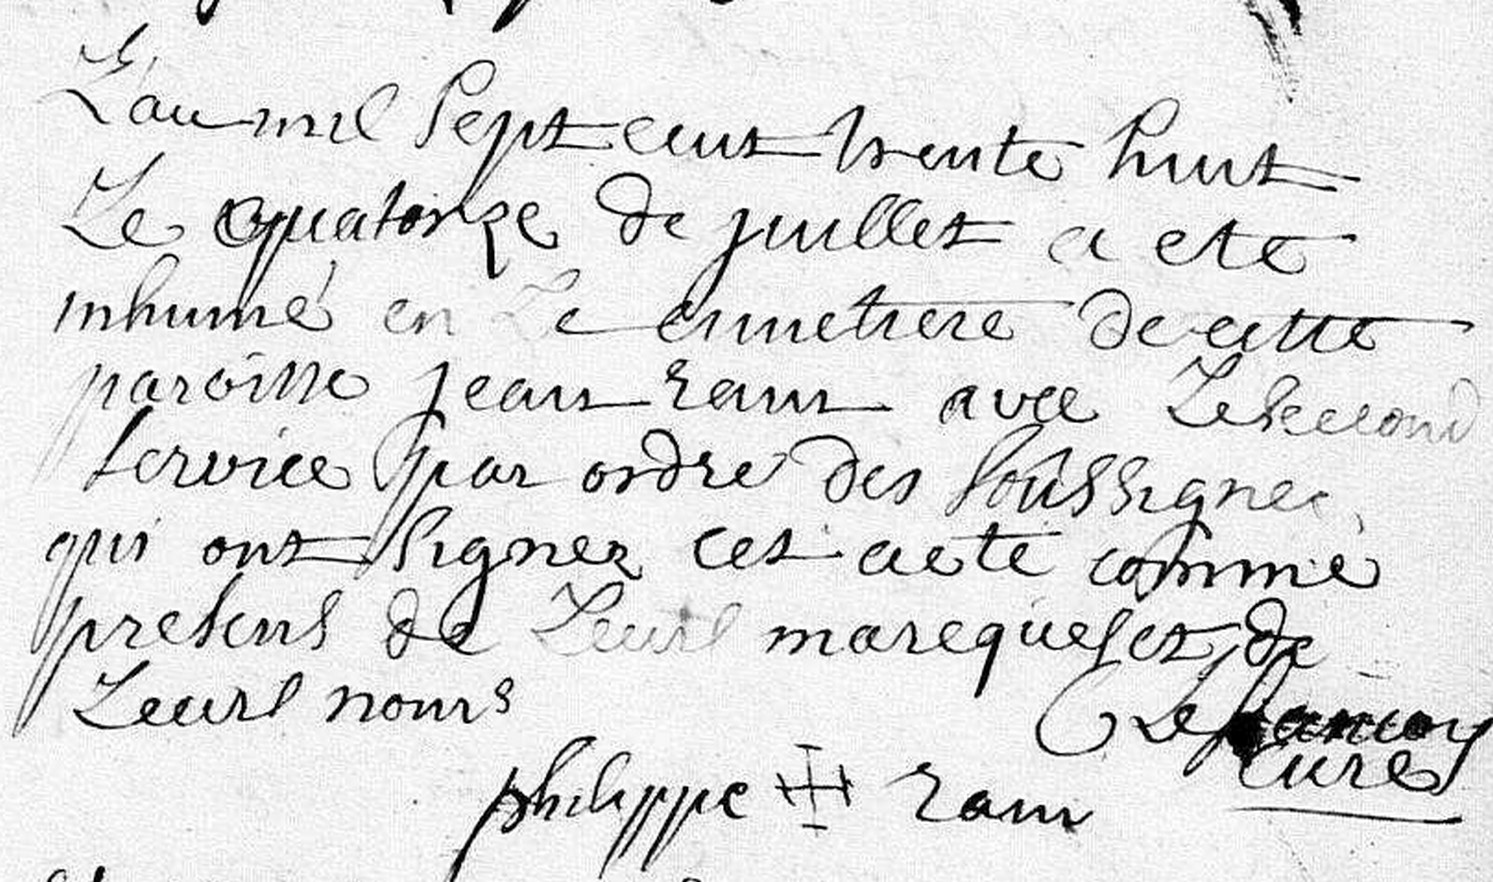 L'an mil sept cent trente huit
Le quatorze de juillet a ete
inhumé en Le cimetiere de cette
paroisse jean ram avec Le second
service par ordre des soussignez
qui ont signez cet acte comme
presens de Leurs marques et de
Leurs noms
curé
philippe ram